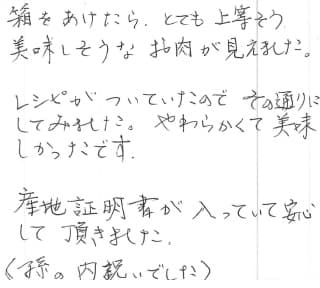 箱をあけたら、とても上等そう
美味しそうなお肉が見えました。
レシピがついていたのでその通りに
してみました。やわらかくて美味
しかったです。
産地証明書が入っていて安心
して頂きました。
(孫の内祝いでした)